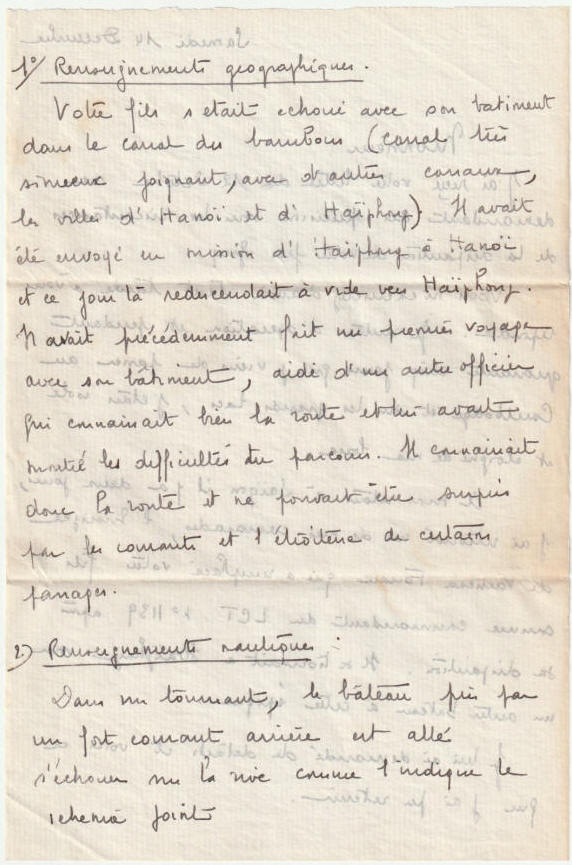 1°/ Renseignements géographiques.
Votre fils s'était échoué avec son batiment
dans le canal des bambous (canal très
sinueux joignant, avec d'autres canaux,
les villes d'Hanoï et d'Haïphong) Il avait
été envoyé en mission d'Haïphong à Hanoï
et ce jour là redescendait à vide vers Haïphong.
Il avait précédemment fait un premier voyage
avec son bâtiment, aidé d'un autre officier
qui connaissait bien la route et lui avait
montré les difficultés du parcours. Il connaissait
donc la route et ne pouvait être surpris
par les courants et l'étroitesse de certains
passages.
2) Renseignements nautiques :
Dans un tournant, le bâteau pris par
un fort courant arrière est allé
s'échouer sur la rive comme l'indique le
schema joint